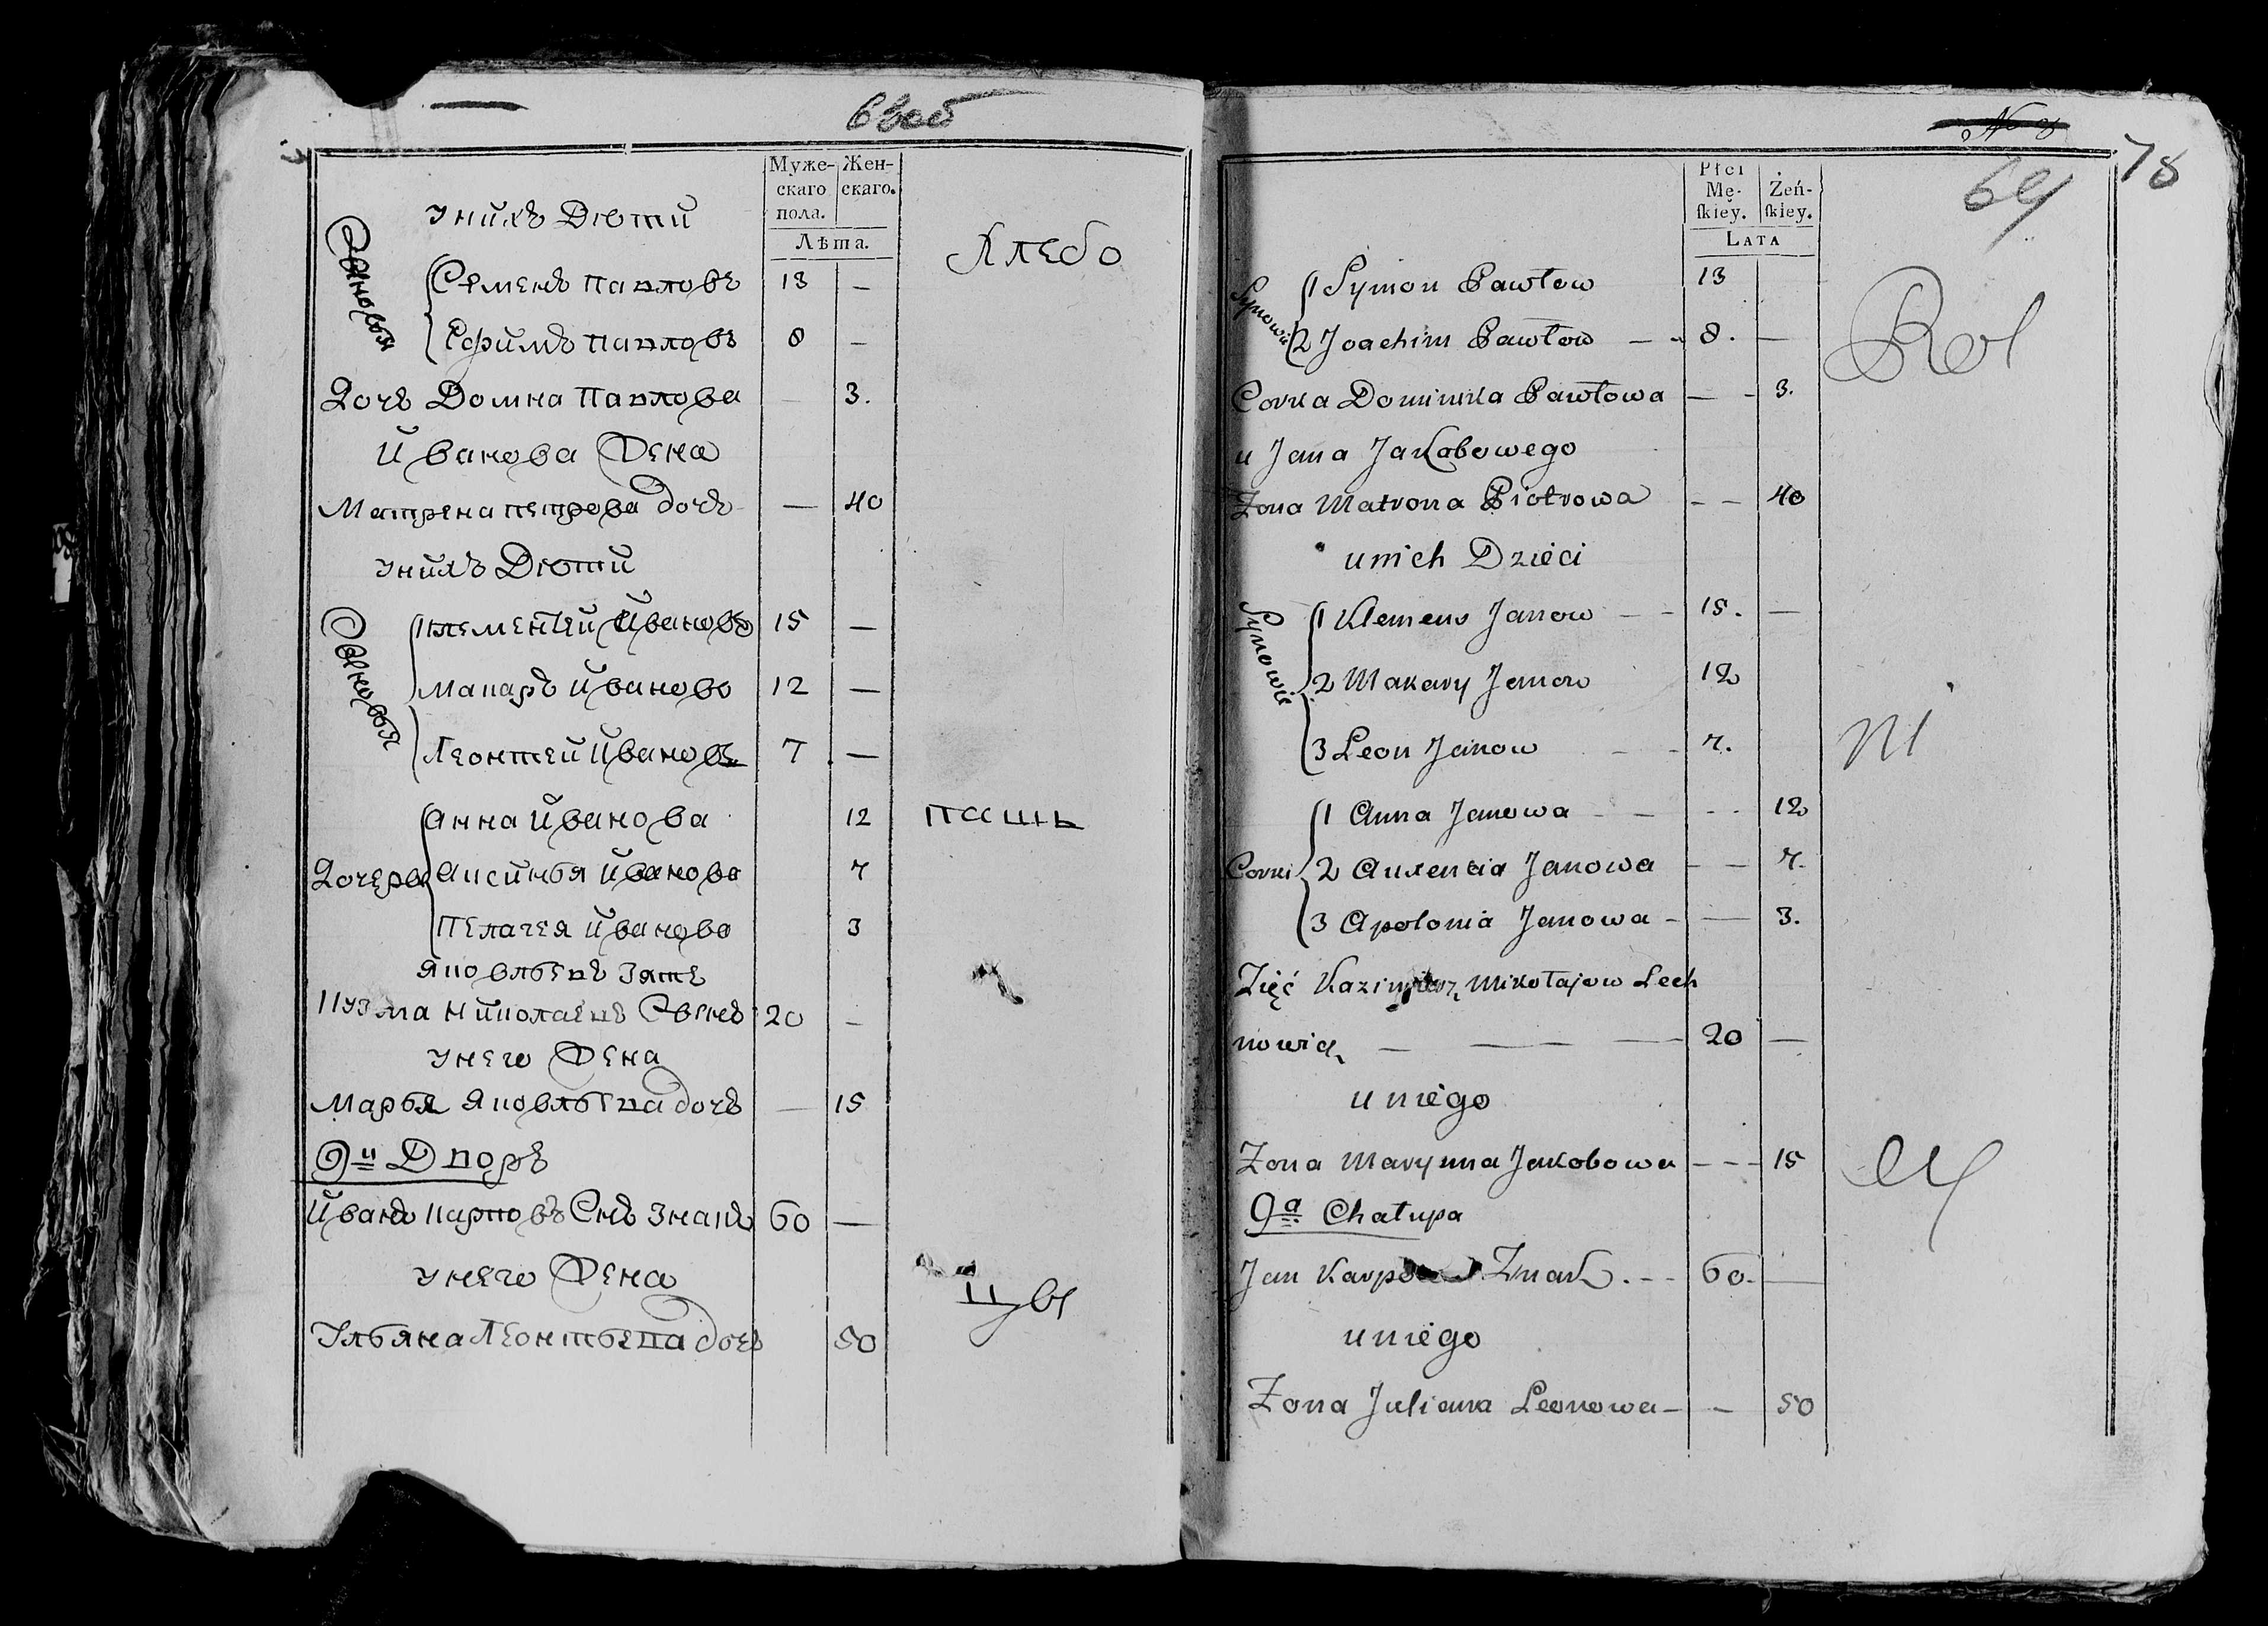 Муже-
скаго
пола.
Жен-
скаго.
Лѣта.
унихъ Дѣти
Хлебо
Сыновья
Семенъ Павловъ 13 —
Ефимъ Павловъ 8 —
Дочь Домна Павлова — 3.
Иванова Жена
Матрена Петрова дочь — 40
унихъ Дѣти
Сыновья
Клементей Ивановъ 15 —
Макаръ Ивановъ 12 —
Леонтей Ивановъ 7 —
Анна Иванова 12
пашь
Дочери
Аксинья Иванова 7
Пелагея Иванова 3
Яковлевъ Зять
Кузма Николаевъ Сынъ 20 —
унего Жена
Марья Яковлева дочь — 15
9й Дворъ
Иванъ Карповъ Снъ Знакъ 60 —
унего Жена
цы
Ульяна Леонтьева дочь 50
78
64
Płci
Mę-
ſkiey.
Żeń-
ſkiey.
LATA
Synowie
1 Symon Pawłow 13
2 Joachim Pawłow — 8. —
Rol
Corka Dominika Pawłowa — 3.
u Jana Jakobowego
Zona Matrona Piotrowa — — 40
unich Dzieci
Synowie
1 Klemens Janow — — 15. —
2 Makary Janow 12
3 Leon Janow — — 7.
ni
1 Anna Janowa — — 12
Corki
2 Auxencia Janowa — — 7.
3 Apolonia Janowa — — 3.
Zięć Kazimierz Mikołajow Lech
nowicz — — — 20 —
uniego
Zona Maryanna Jakobowa — — 15
cy
9a Chałupa
Jan Karpow Znak. — — 60. —
uniego
Zona Juliana Leonowa — — 50